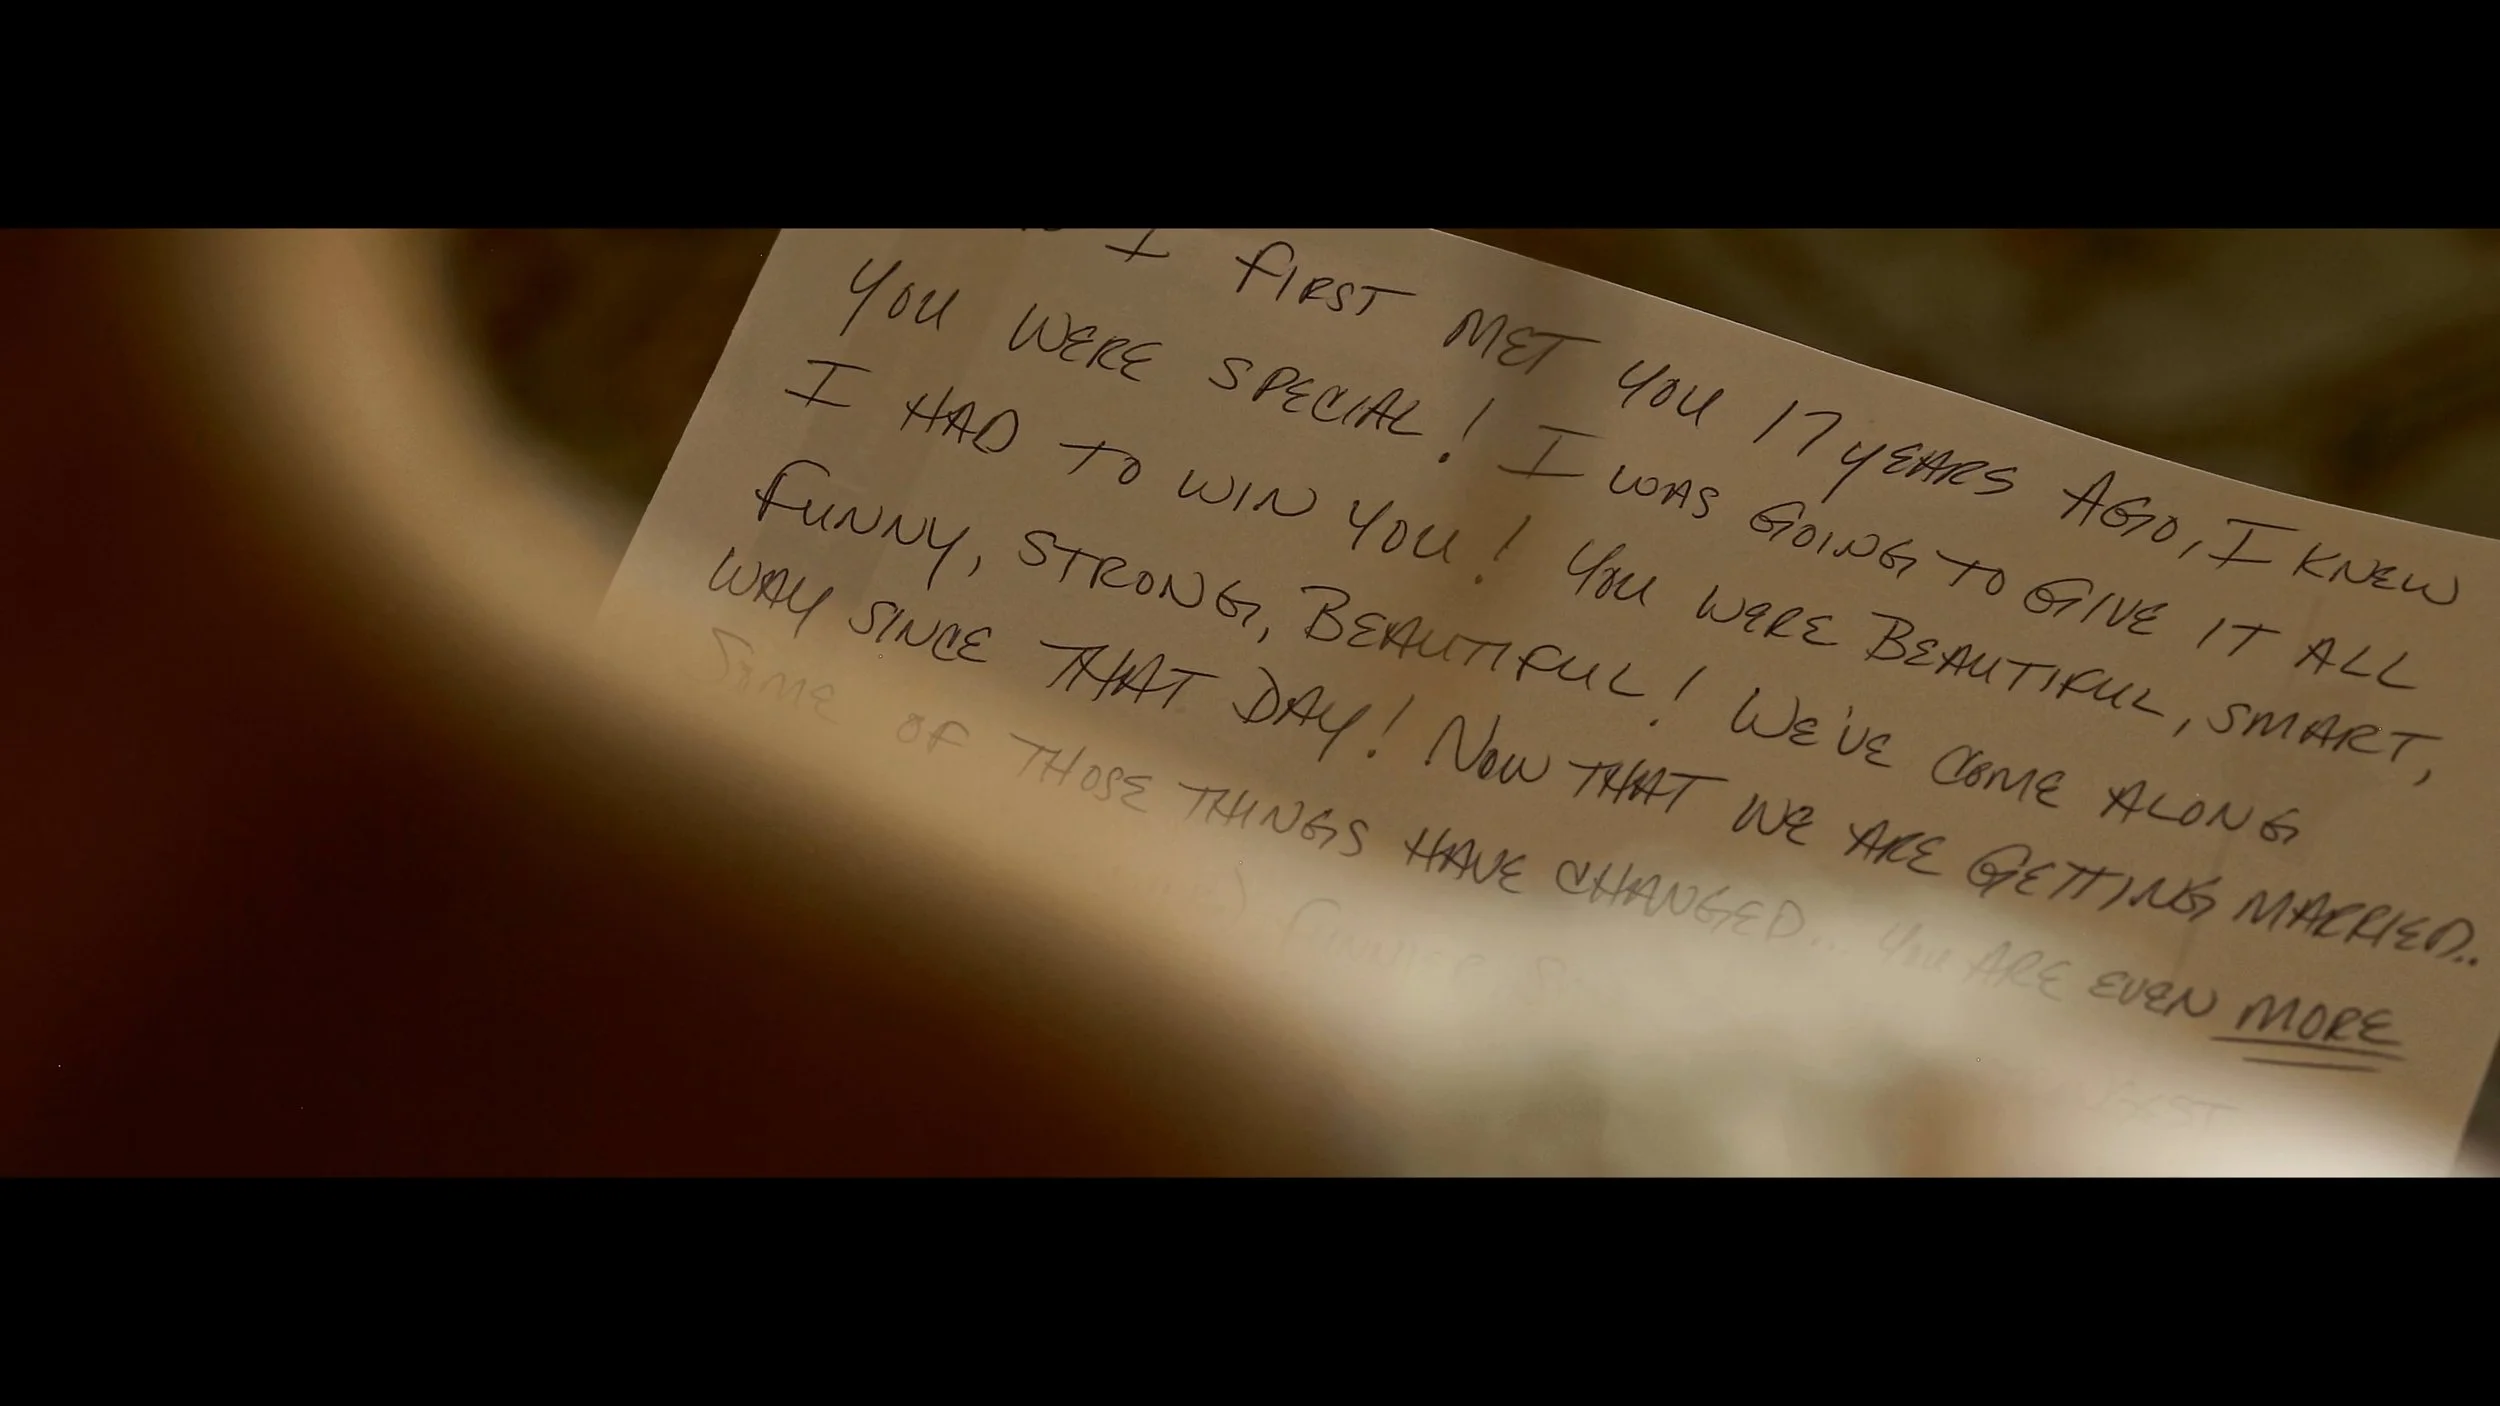 I FIRST MET YOU 17 YEARS AGO, I KNEW
YOU WERE SPECIAL! I WAS GOING TO GIVE IT ALL
I HAD TO WIN YOU! YOU WERE BEAUTIFUL, SMART,
FUNNY, STRONG, BEAUTIFUL! WE'VE COME ALONG
WAY SINCE THAT DAY! NOW THAT WE ARE GETTING MARRIED..
SOME OF THOSE THINGS HAVE CHANGED.. YOU ARE EVEN MORE